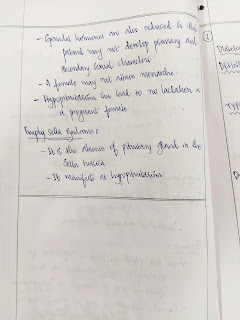 - Gonadal hormones are also reduced so the
patient may not develop primary and
secondary sexual characters.
- A female may not attain menarche.
- Hypopituitarism can lead to no lactation in
a pregnant female.
Empty Sella Syndrome :
- It is the absence of pituitary gland in the
Sella turcica
- It manifests as hypopituitarism.